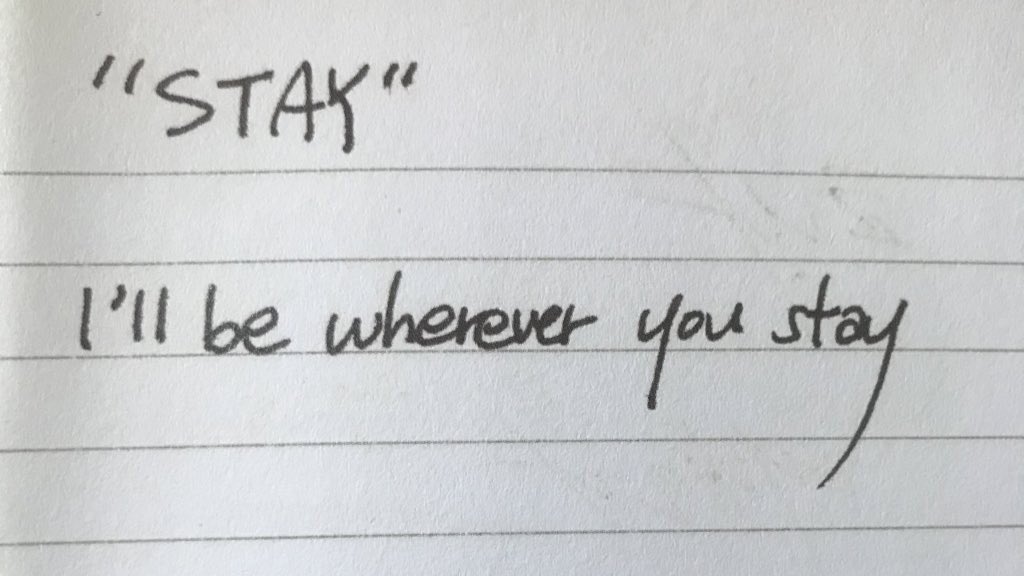 "STAY"
I'll be wherever you stay